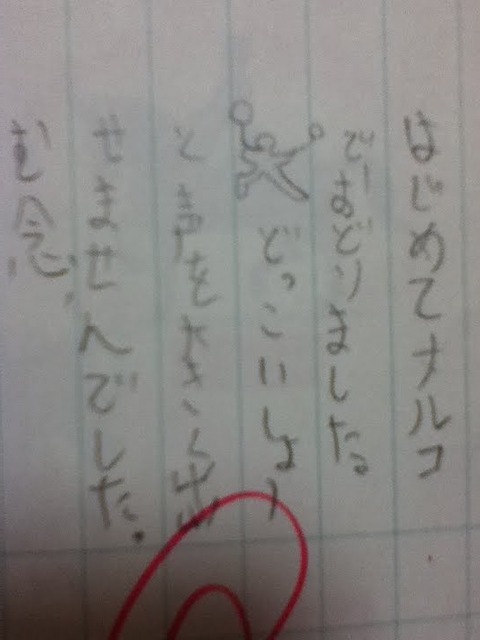 はじめてナルコ
でおどりました
どっこいしょー
と声を大きく出
せませんでした。
む念